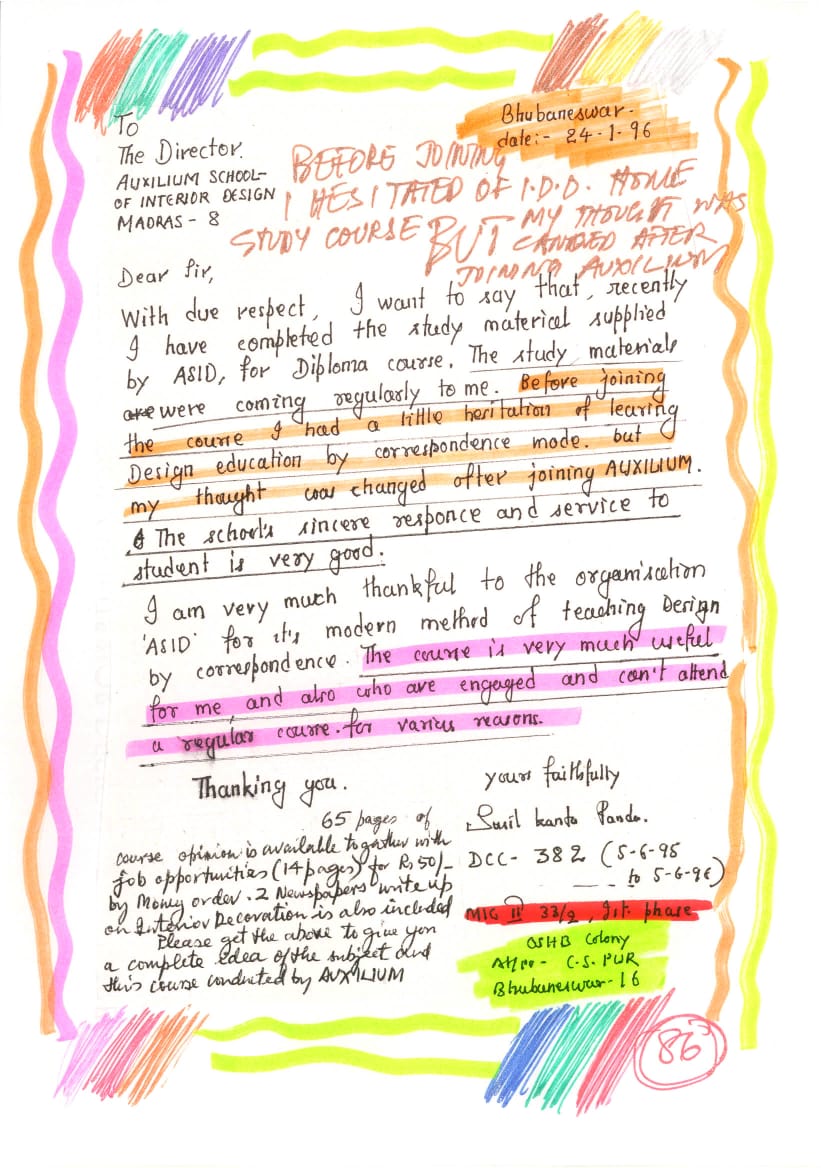 To
The Director.
AUXILIUM SCHOOL-
OF INTERIOR DESIGN
MADRAS - 8
Bhubaneswar.
date:- 24-1-96
BEFORE JOINING
I HESITATED OF I.D.D. HOME
STUDY COURSE BUT MY THOUGHT WAS
CANGED AFTER
JOINING AUXILIUM
Dear Sir,
With due respect, I want to say that, recently
I have completed the study material supplied
by ASID, for Diploma course. The study materials
are were coming regularly to me. Before joining
the course I had a little hesitation of learing
Design education by correspondence mode. but
my thought was changed after joining AUXILIUM.
The school's sincere responce and service to
student is very good.
I am very much thankful to the organisation
'ASID' for it's modern method of teaching Design
by correspondence. The course is very much useful
for me, and also who are engaged and can't attend
a regular course. for various reasons.
Thanking you.
yours faithfully
Susil kanta Panda.
DCC - 382 (5-6-95
to 5-6-96)
MIG II 33/2, 1st. phase
OSHB Colony
At/po - C.S. PUR
Bhubaneswar - 16
65 pages of
course opinion is available together with
job opportunities (14 pages) for Rs 50/-
by Money order. 2 Newspapers write up
on Interior Decoration is also included
Please get the above to give you
a complete idea of the subject and
this course conducted by AUXILIUM
86